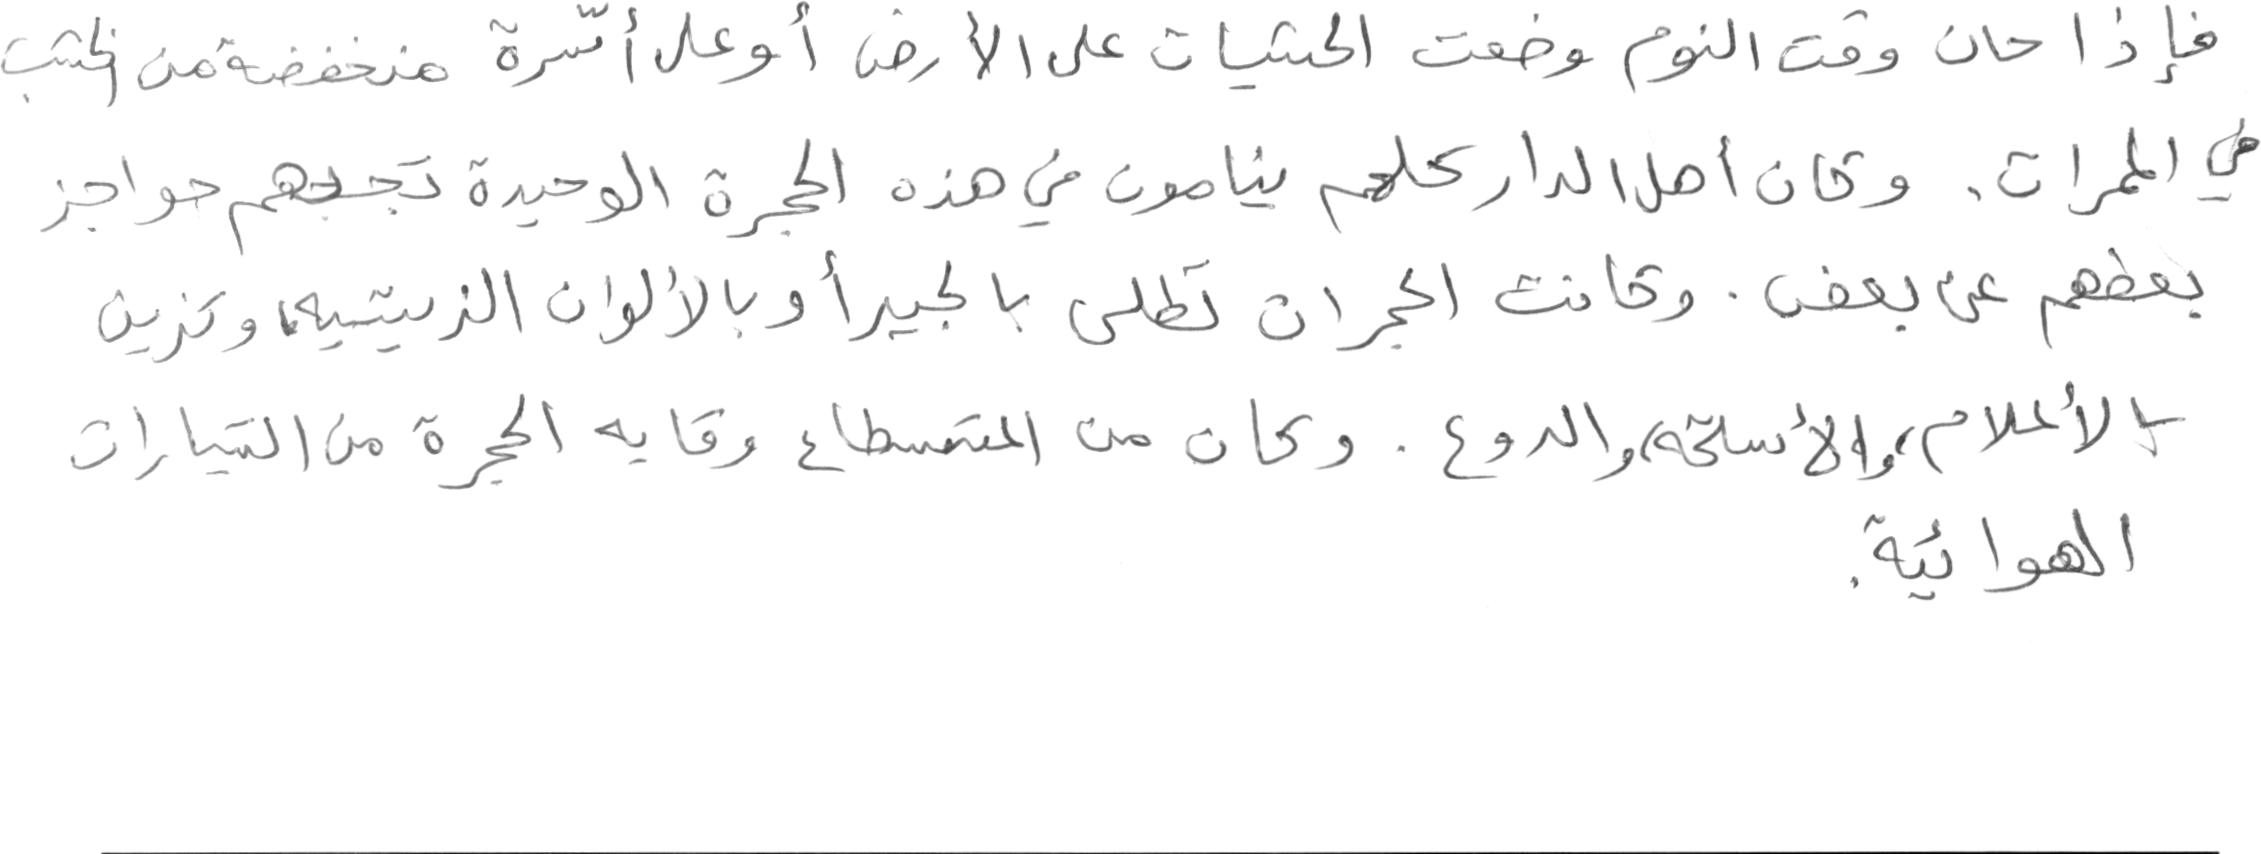 فإذا حان وقت النوم وضعت الحشيات على الأرض أو على أسّرة منخفضة من الخشب
في الممرات. وكان أهل الدار كلهم ينامون في هذه الحجرة الوحيدة تحجبهم حواجز
بعضهم عن بعض. وكانت الحجرات تطلى بالجير أو بالألوان الزيتيه، وتزين
بالأعلام، والأسلحة، والدروع. وكان من المستطاع وقايه الحجرة من التيارات
الهوائية.